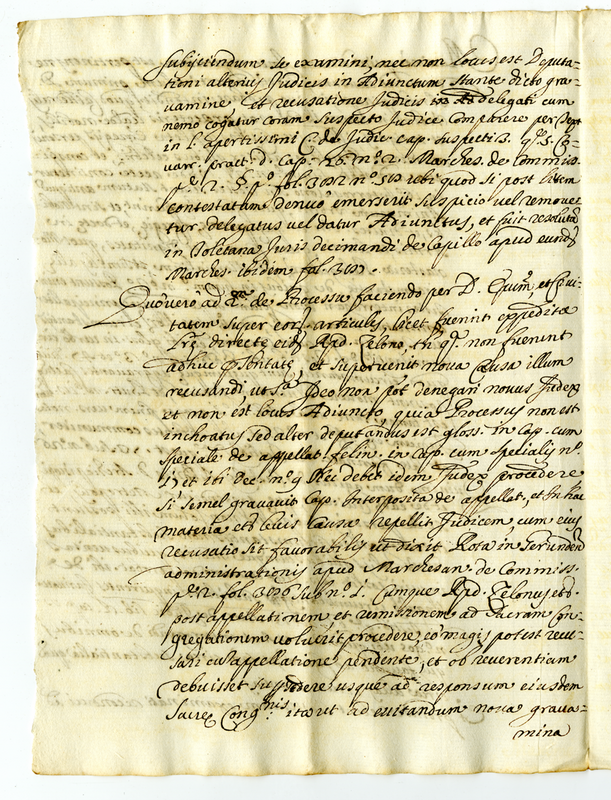 subijciendum se examini, nec non locus est Deputa-
tioni alterius Judicis in Adiunctum stante dicto gra-
vamine, et recusatione Judicis Addelegati cum
nemo cogatur coram suspecto Judice Comparere per text
in l. apertissimi C. de Judic. cap. suspecti 3. q. 5. Co-
var: pract. d. Cap. 26. nº. 2. Marches. de Commiss.
pe. 2. § pº. fol. nº ubi quod si post litem
contestatam denuo emerserit suspicio vel remove-
tur delegatus vel datur Adiunctus, et fuit resolutũ
in Toletana Juris decimandi de Capillo apud eundẽ
Marches. ibidem fol.
Quo vero ad de Processu faciendo per D. Epũm, et Civi-
tatem super articulis, licet fuerint expeditæ
directe Rpd. Celono, tñ non fuerunt
adhuc et supervenit nova causa illum
recusandi, ut sª. Ideo non pot denegari novus Judex
et non est locus Adiuncto, quia Processus non est
inchoatus sed alter deputandus est gloss. in Cap. cum
speciale de appellat. felin. in cap. cum spetialij nº.
17 et ibi Dec. nº. 9 Nec debet idem Judex procedere
si semel gravavit Cap. Interposita de appellat, et In hac
materia etiã levis causa repellit Judicem, cum eius
recusatio sit favorabilis ut dixit Rota in
administrationis apud Marchesan. de Commiss.
pe. 2. fol. sub nº. 1. Cumque Rpd. Celonus
post appellationem et remissionem ad Sacram Con-
gregationem voluerit procedere, eo magis potest recu-
sari appellatione pendente, et ob reverentiam
debuisset supersedere usque ad responsum eiusdem
Sacræ Congnis. ita ut ad evitandum nova grava-
mina